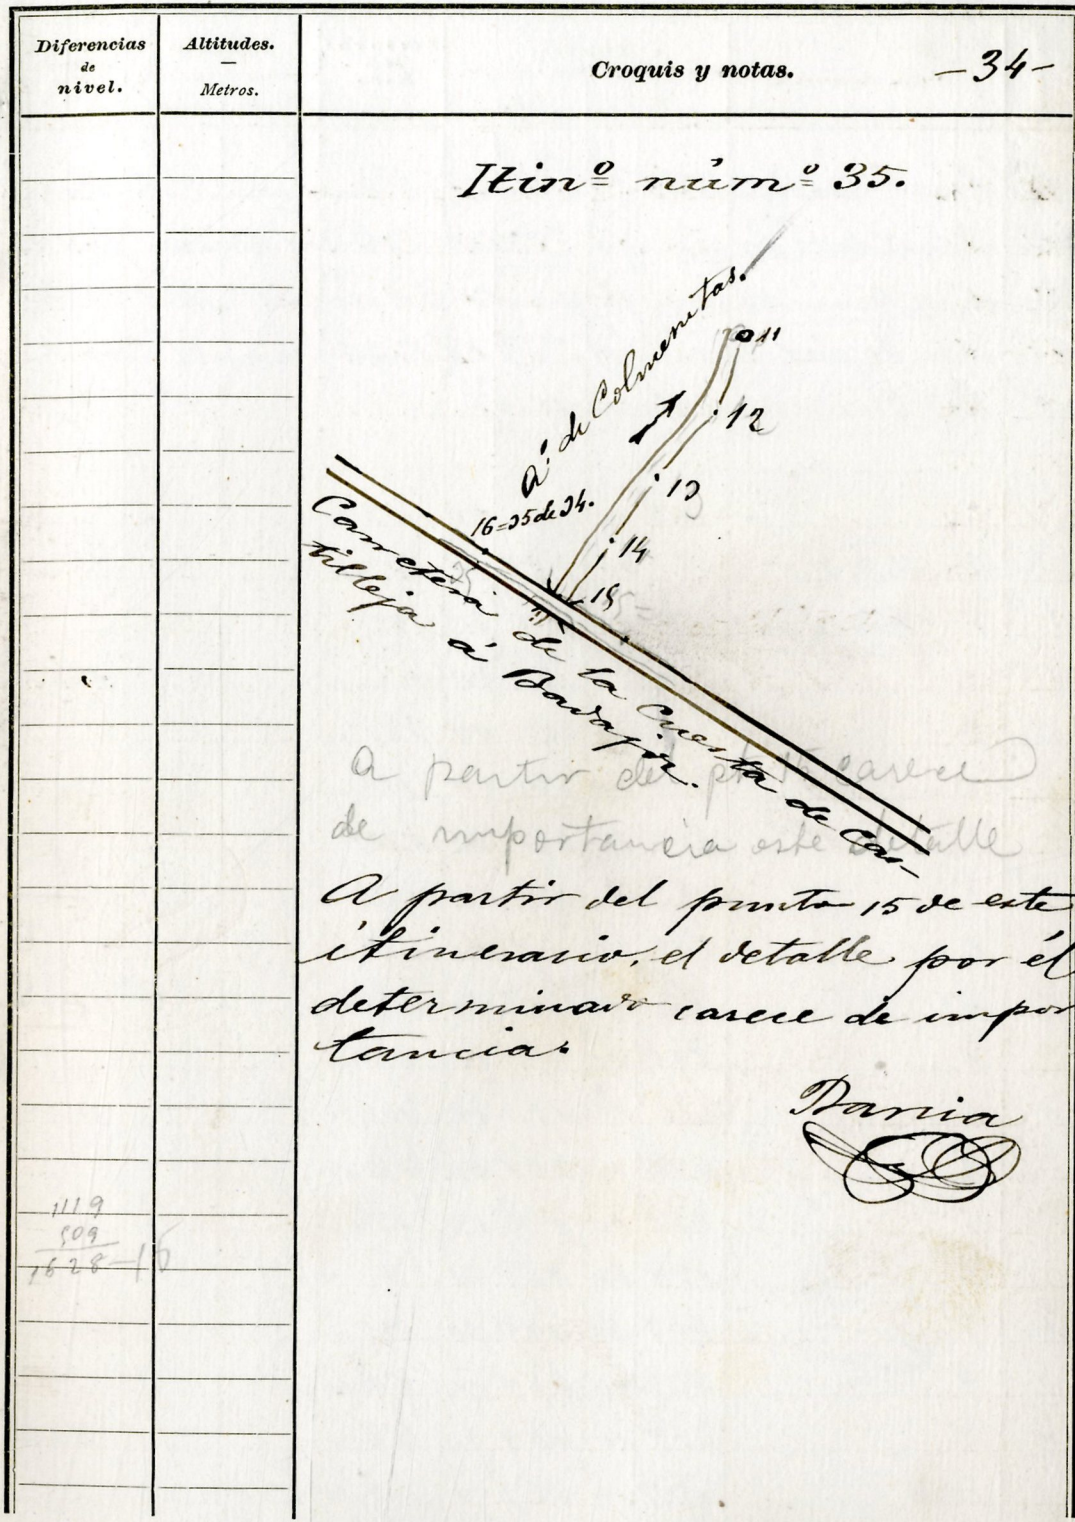 Diferencias
de
nivel.
Altitudes.
—
Metros.
Croquis y notas.
-34-
Itinº númº 35.
A.º de Colmenitas.
11
12
13
14
15
16=35 de 34.
Carretera de la Cuesta de Cas-
tilleja á Badajoz.
A partir del pto 15 carece
de importancia este detalle
A partir del punto 15 de este
itinerario, el detalle por él
determinado carece de impor
tancia.
1119
509
1628-15